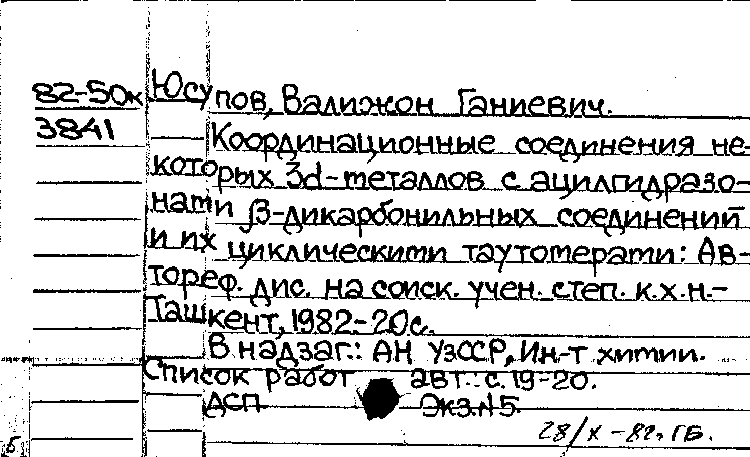 82-50к Юсупов, Валижон Ганиевич.
3841 Координационные соединения не-
которых 3d-металлов с ацилгидразо-
нами β-дикарбонильных соединений
и их циклическими таутомерами: Ав-
тореф. дис. на соиск. учен. степ. к.х.н.-
Ташкент, 1982-20с.
В надзаг.: АН УзССР, Ин-т химии.
Список работ авт.: с. 19-20.
ДСП Экз.№5.
28/X-82. ГБ.
Б